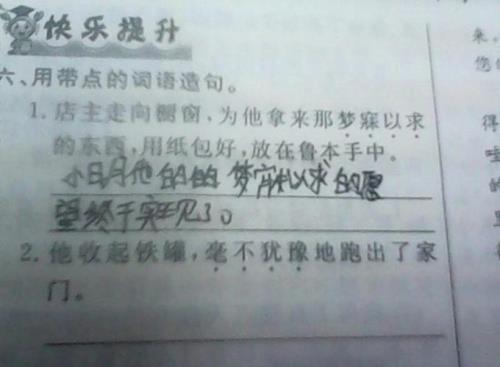 快乐提升
六、用带点的词语造句。
1. 店主走向橱窗，为他拿来那梦寐以求
的东西，用纸包好，放在鲁本手中。
小明他的 梦 以求的愿
望终于实现了。
2. 他收起铁罐，毫不犹豫地跑出了家
门。
来，
您
得
的